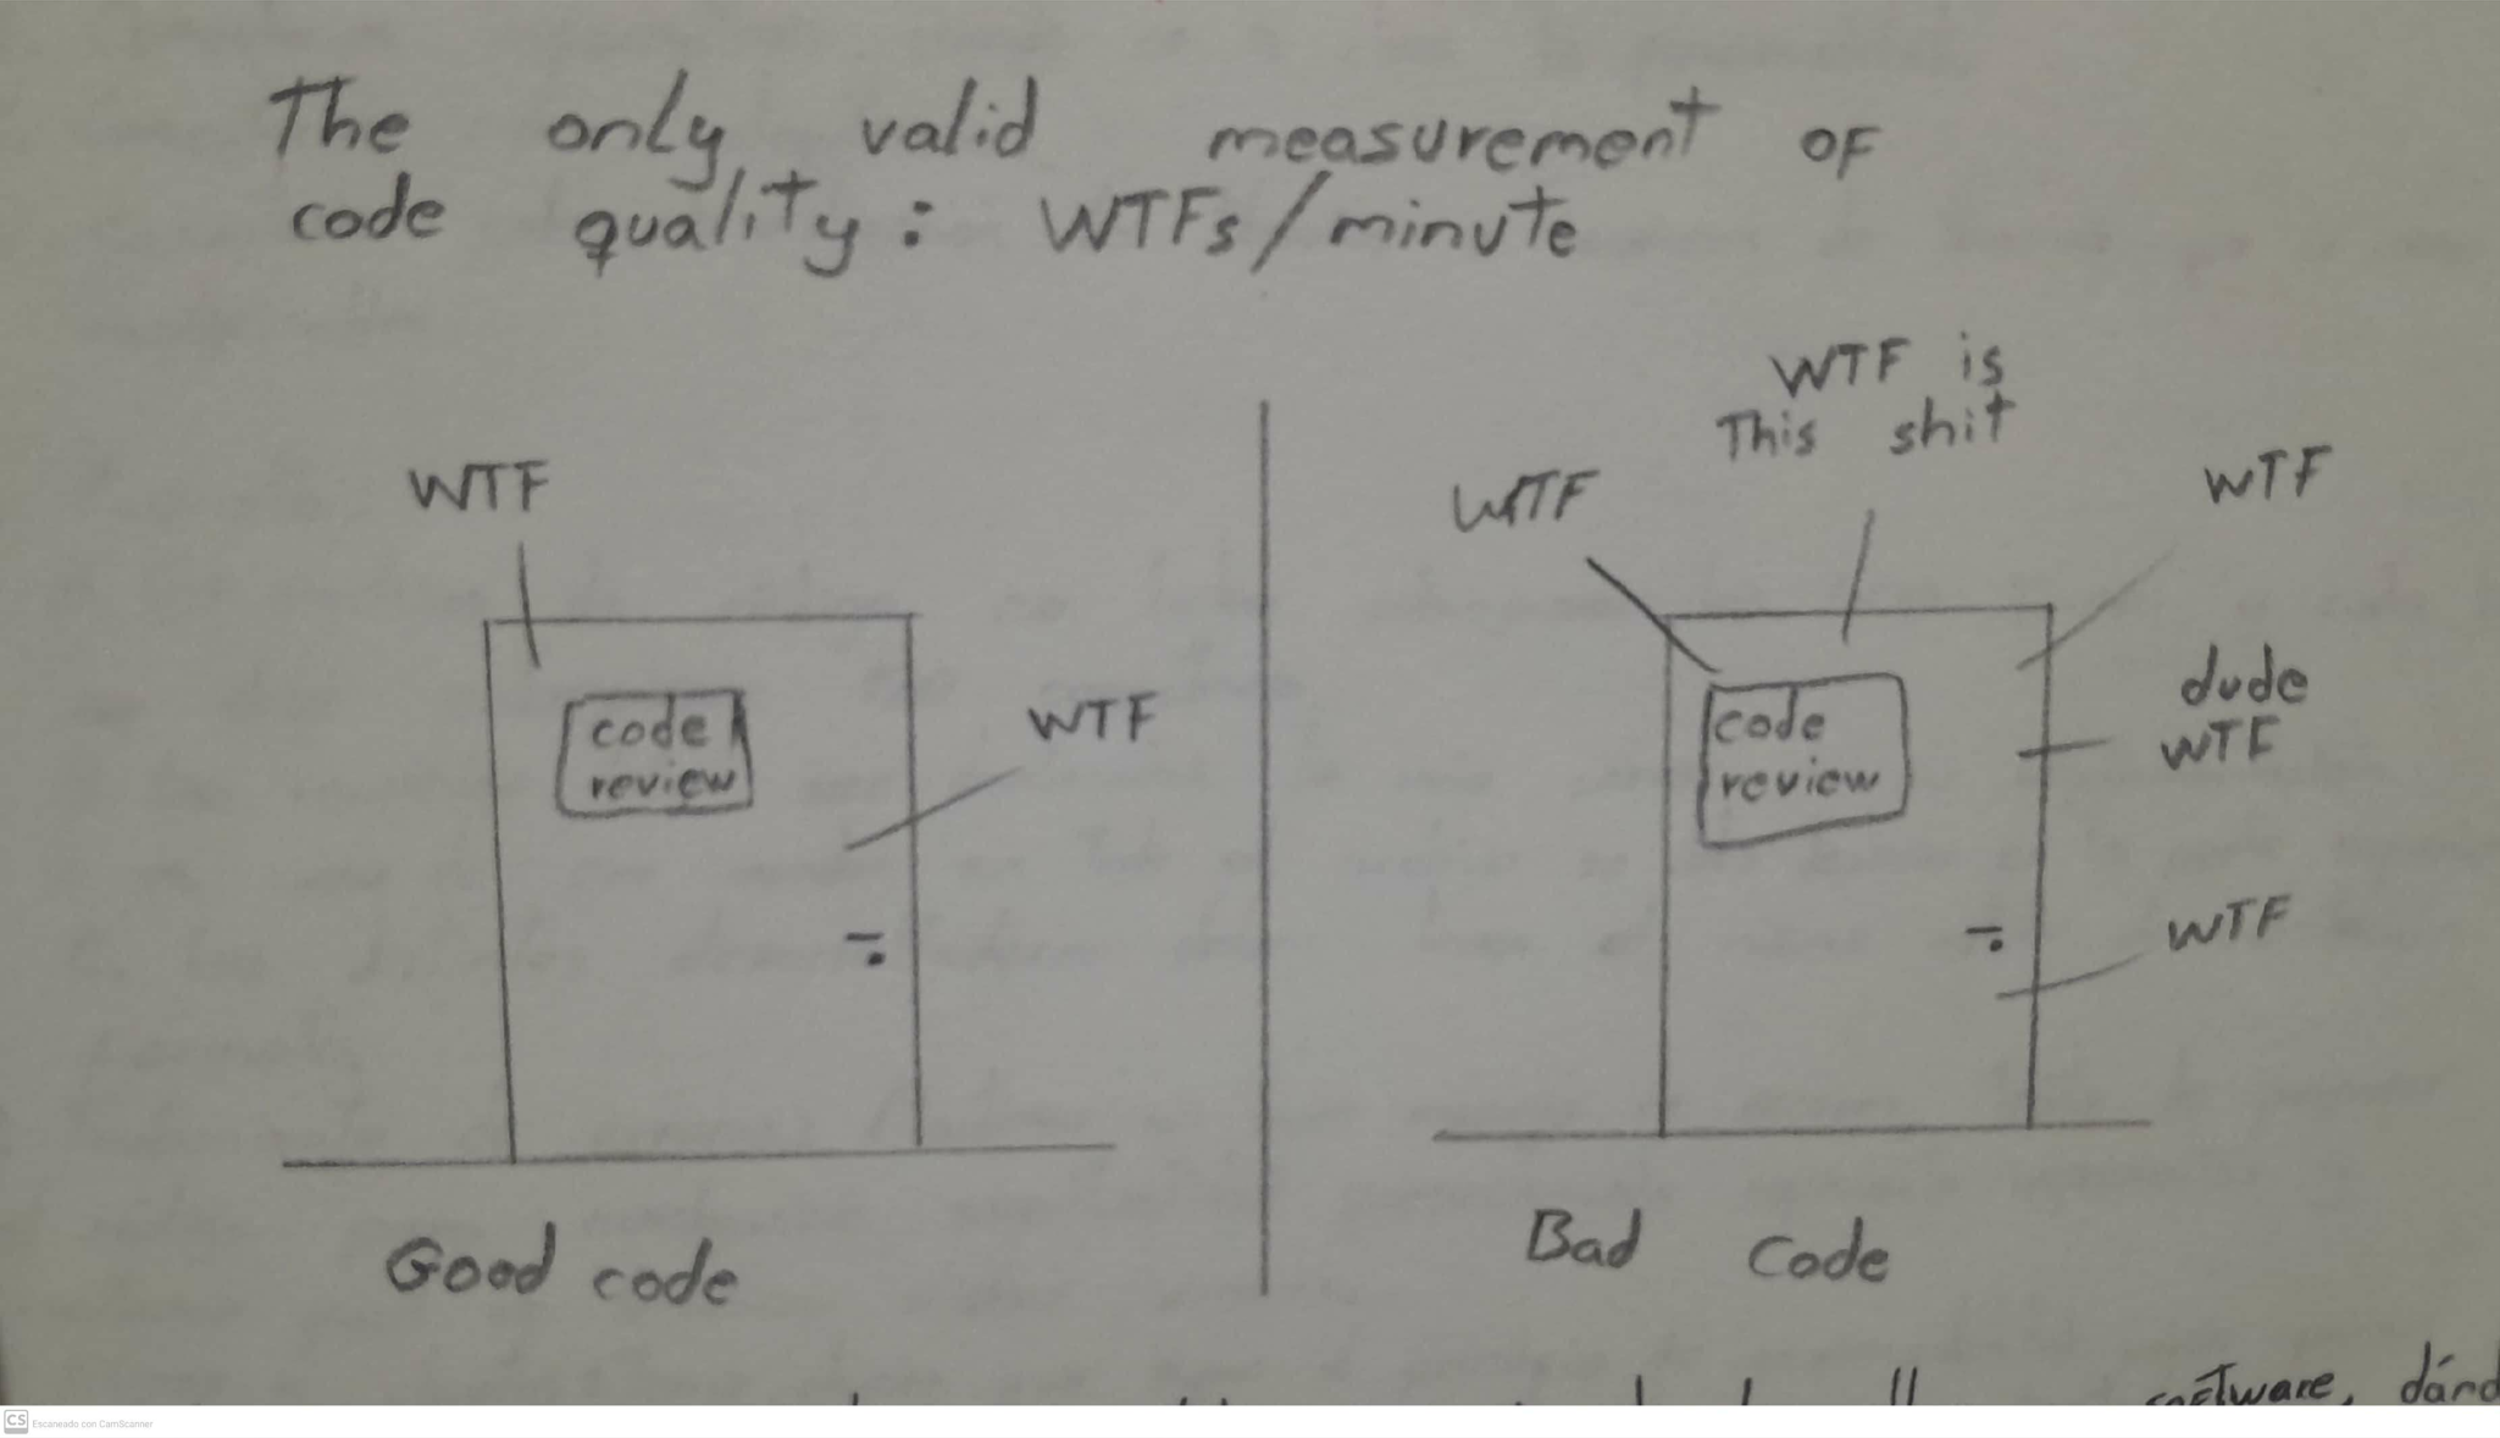 The only valid measurement of
code quality: WTFs/minute
WTF
WTF
code
review
Good code
WTF is
This shit
WTF
WTF
dude
WTF
WTF
code
review
Bad Code
software, dánd
CS Escaneado con CamScanner